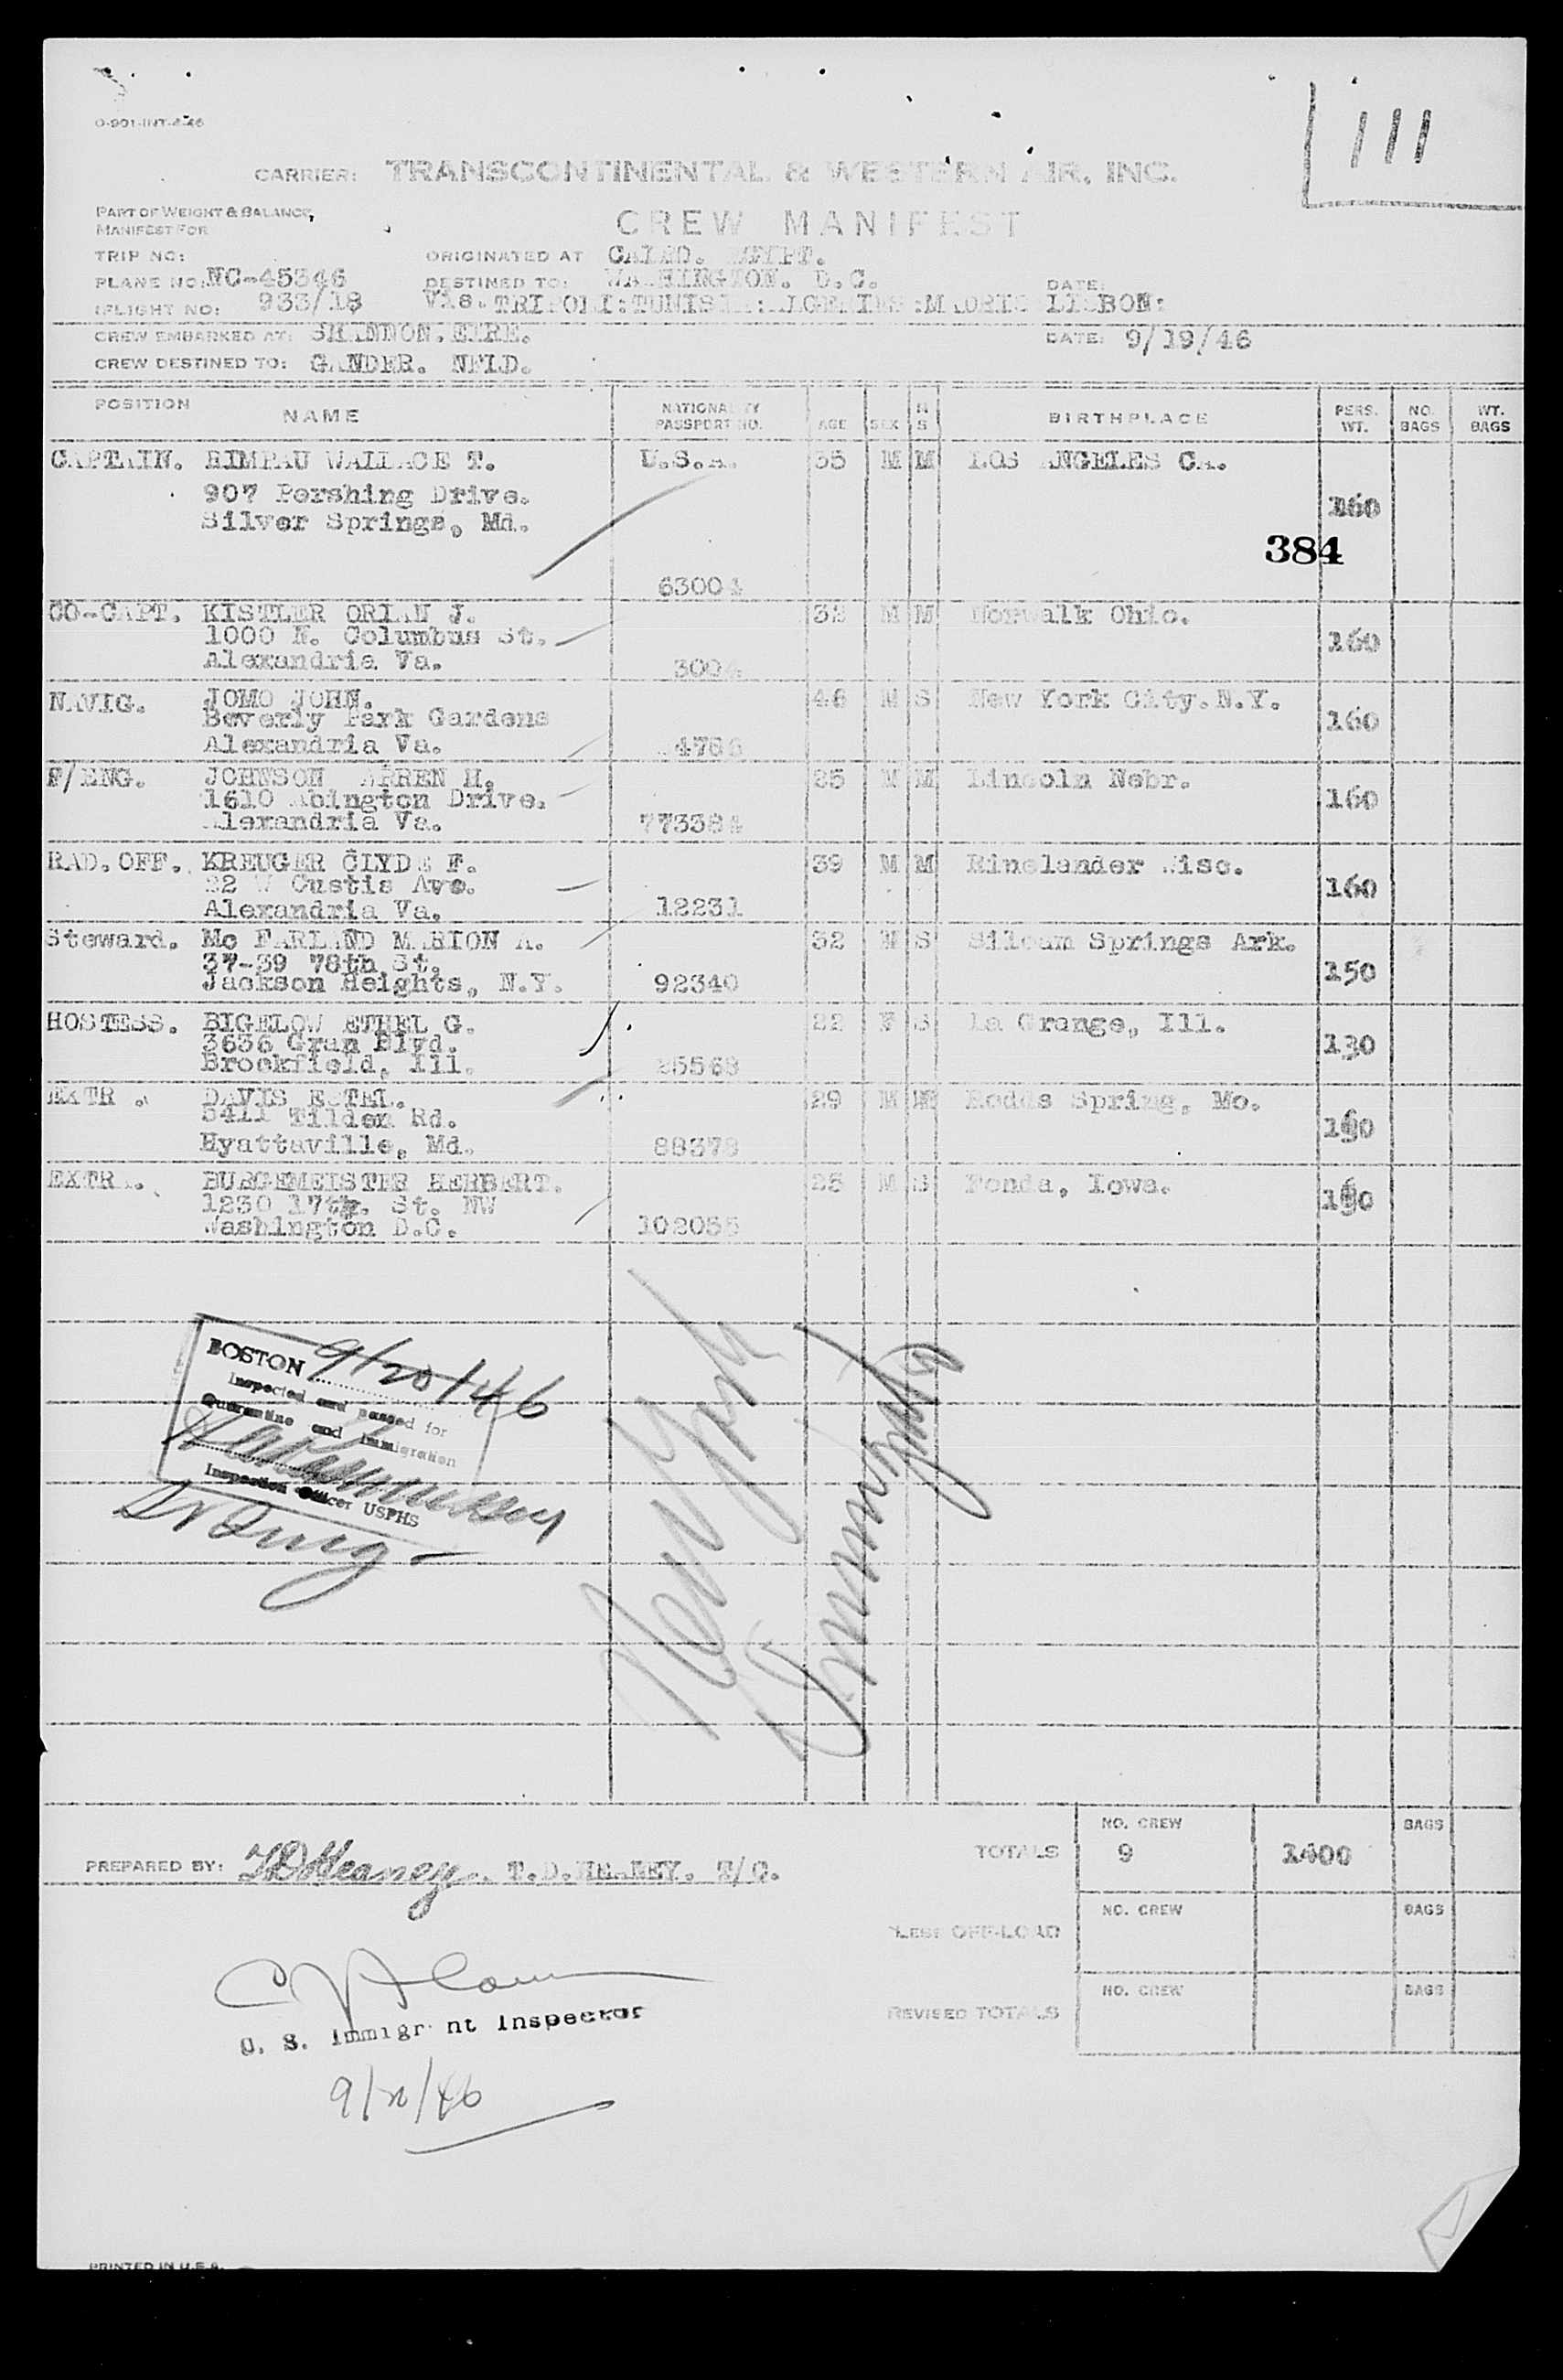 O-901-INT-4-46
111
CARRIER: TRANSCONTINENTAL & WESTERN AIR, INC.
PART OF WEIGHT & BALANCE,
MANIFEST FOR
CREW MANIFEST
TRIP NO: ORIGINATED AT CAIRO. EGYPT.
PLANE NO: NC-45346 DESTINED TO: WASHINGTON. D.C. DATE:
FLIGHT NO: 933/18 Via. TRIPOLI: TUNISIA: ALGERIES :MADRID LISBON:
CREW EMBARKED AT: SHANNON. EIRE. DATE: 9/19/46
CREW DESTINED TO: GANDER. NFLD.
POSITION NAME NATIONALITY PASSPORT NO. AGE SEX M S BIRTHPLACE PERS. WT. NO. BAGS WT. BAGS
CAPTAIN. RIMPAU WALLACE T. U.S.A. 35 M M LOS ANGELES CA.
907 Pershing Drive. 160
Silver Springs, Md.
384
63004
CO-CAPT. KISTLER ORIAN J. 32 M M Norwalk Ohio.
1000 N. Columbus St. 160
Alexandria Va. 3004
NAVIG. JOMO JOHN. 46 M S New York City. N.Y.
Beverly Park Gardens 160
Alexandria Va.
F/ENG. JOHNSON WARREN H. 25 M M Lincoln Nebr.
1610 Abington Drive. 160
Alexandria Va. 773384
RAD. OFF. KREUGER CLYDE F. 39 M M Rinelander Wisc.
22 W Custis Ave. 160
Alexandria Va. 12231
Steward. Mc FARLAND MARION A. 32 M S Siloam Springs Ark.
37-39 78th St. 150
Jackson Heights, N.Y. 92340
HOSTESS. BIGELOW ETHEL G. 22 F S La Grange, Ill.
3636 Gran Blvd. 130
Brookfield, Ill. 25568
EXTRA. DAVIS ESTEL. 29 M M Rodds Spring, Mo.
5411 Tilden Rd. 160
Hyattaville, Md. 88378
EXTRA. BURGEMEISTER HERBERT. 25 M S Fonda, Iowa.
1230 17th. St. NW 160
Washington D.C. 102055
BOSTON 9/20/46
Inspected and passed for
Quarantine and Immigration
Inspection Officer USPHS
New York
Immigration
TOTALS NO. CREW 9 1400 BAGS
PREPARED BY: TDHeaney. T.D. HEANEY. T/C.
LESS OFF-LOAD NO. CREW BAGS
REVISED TOTALS NO. CREW BAGS
U. S. Immigrant Inspector
9/20/46
PRINTED IN U.S.A.